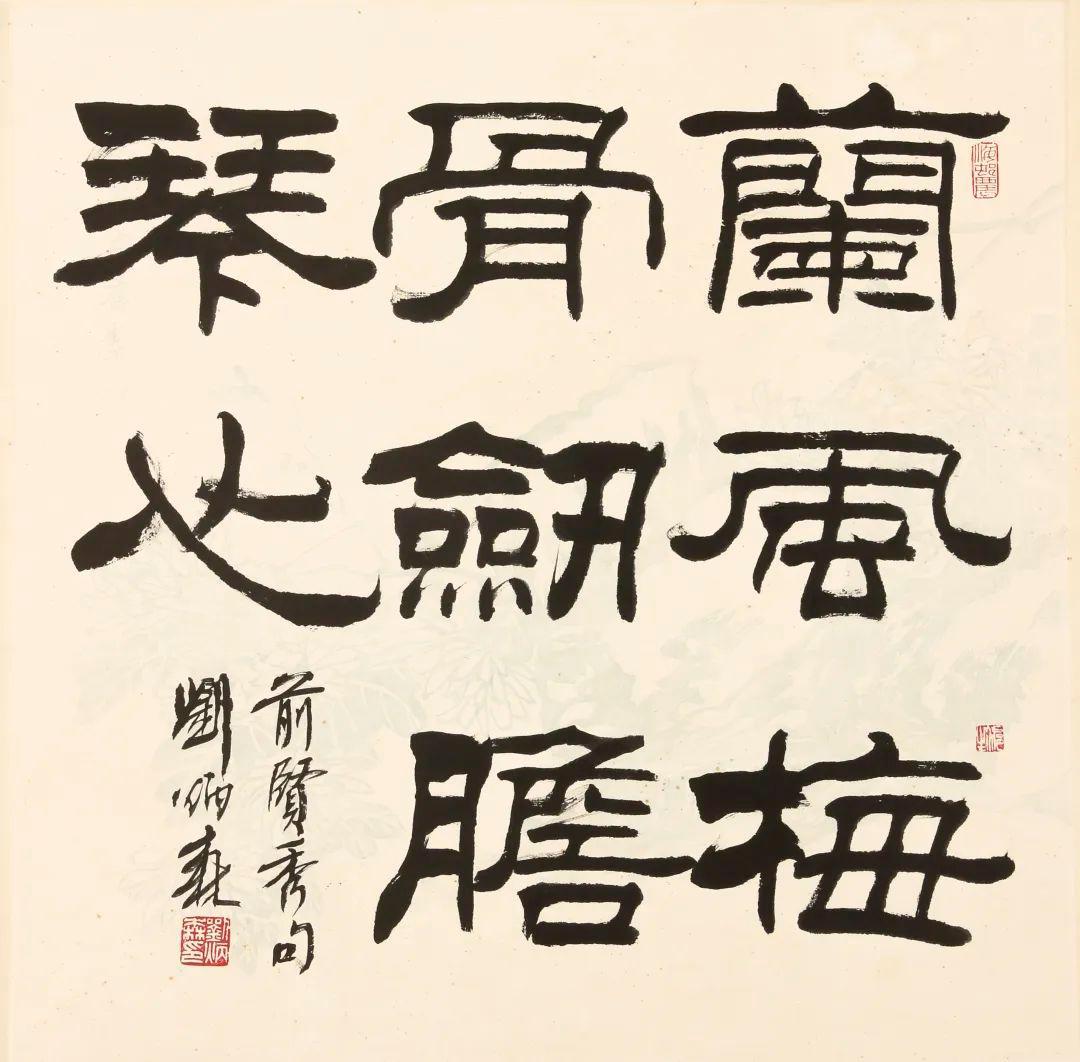 蘭風梅
骨劔膽
琴心
前賢秀句
劉炳森
劉炳森印